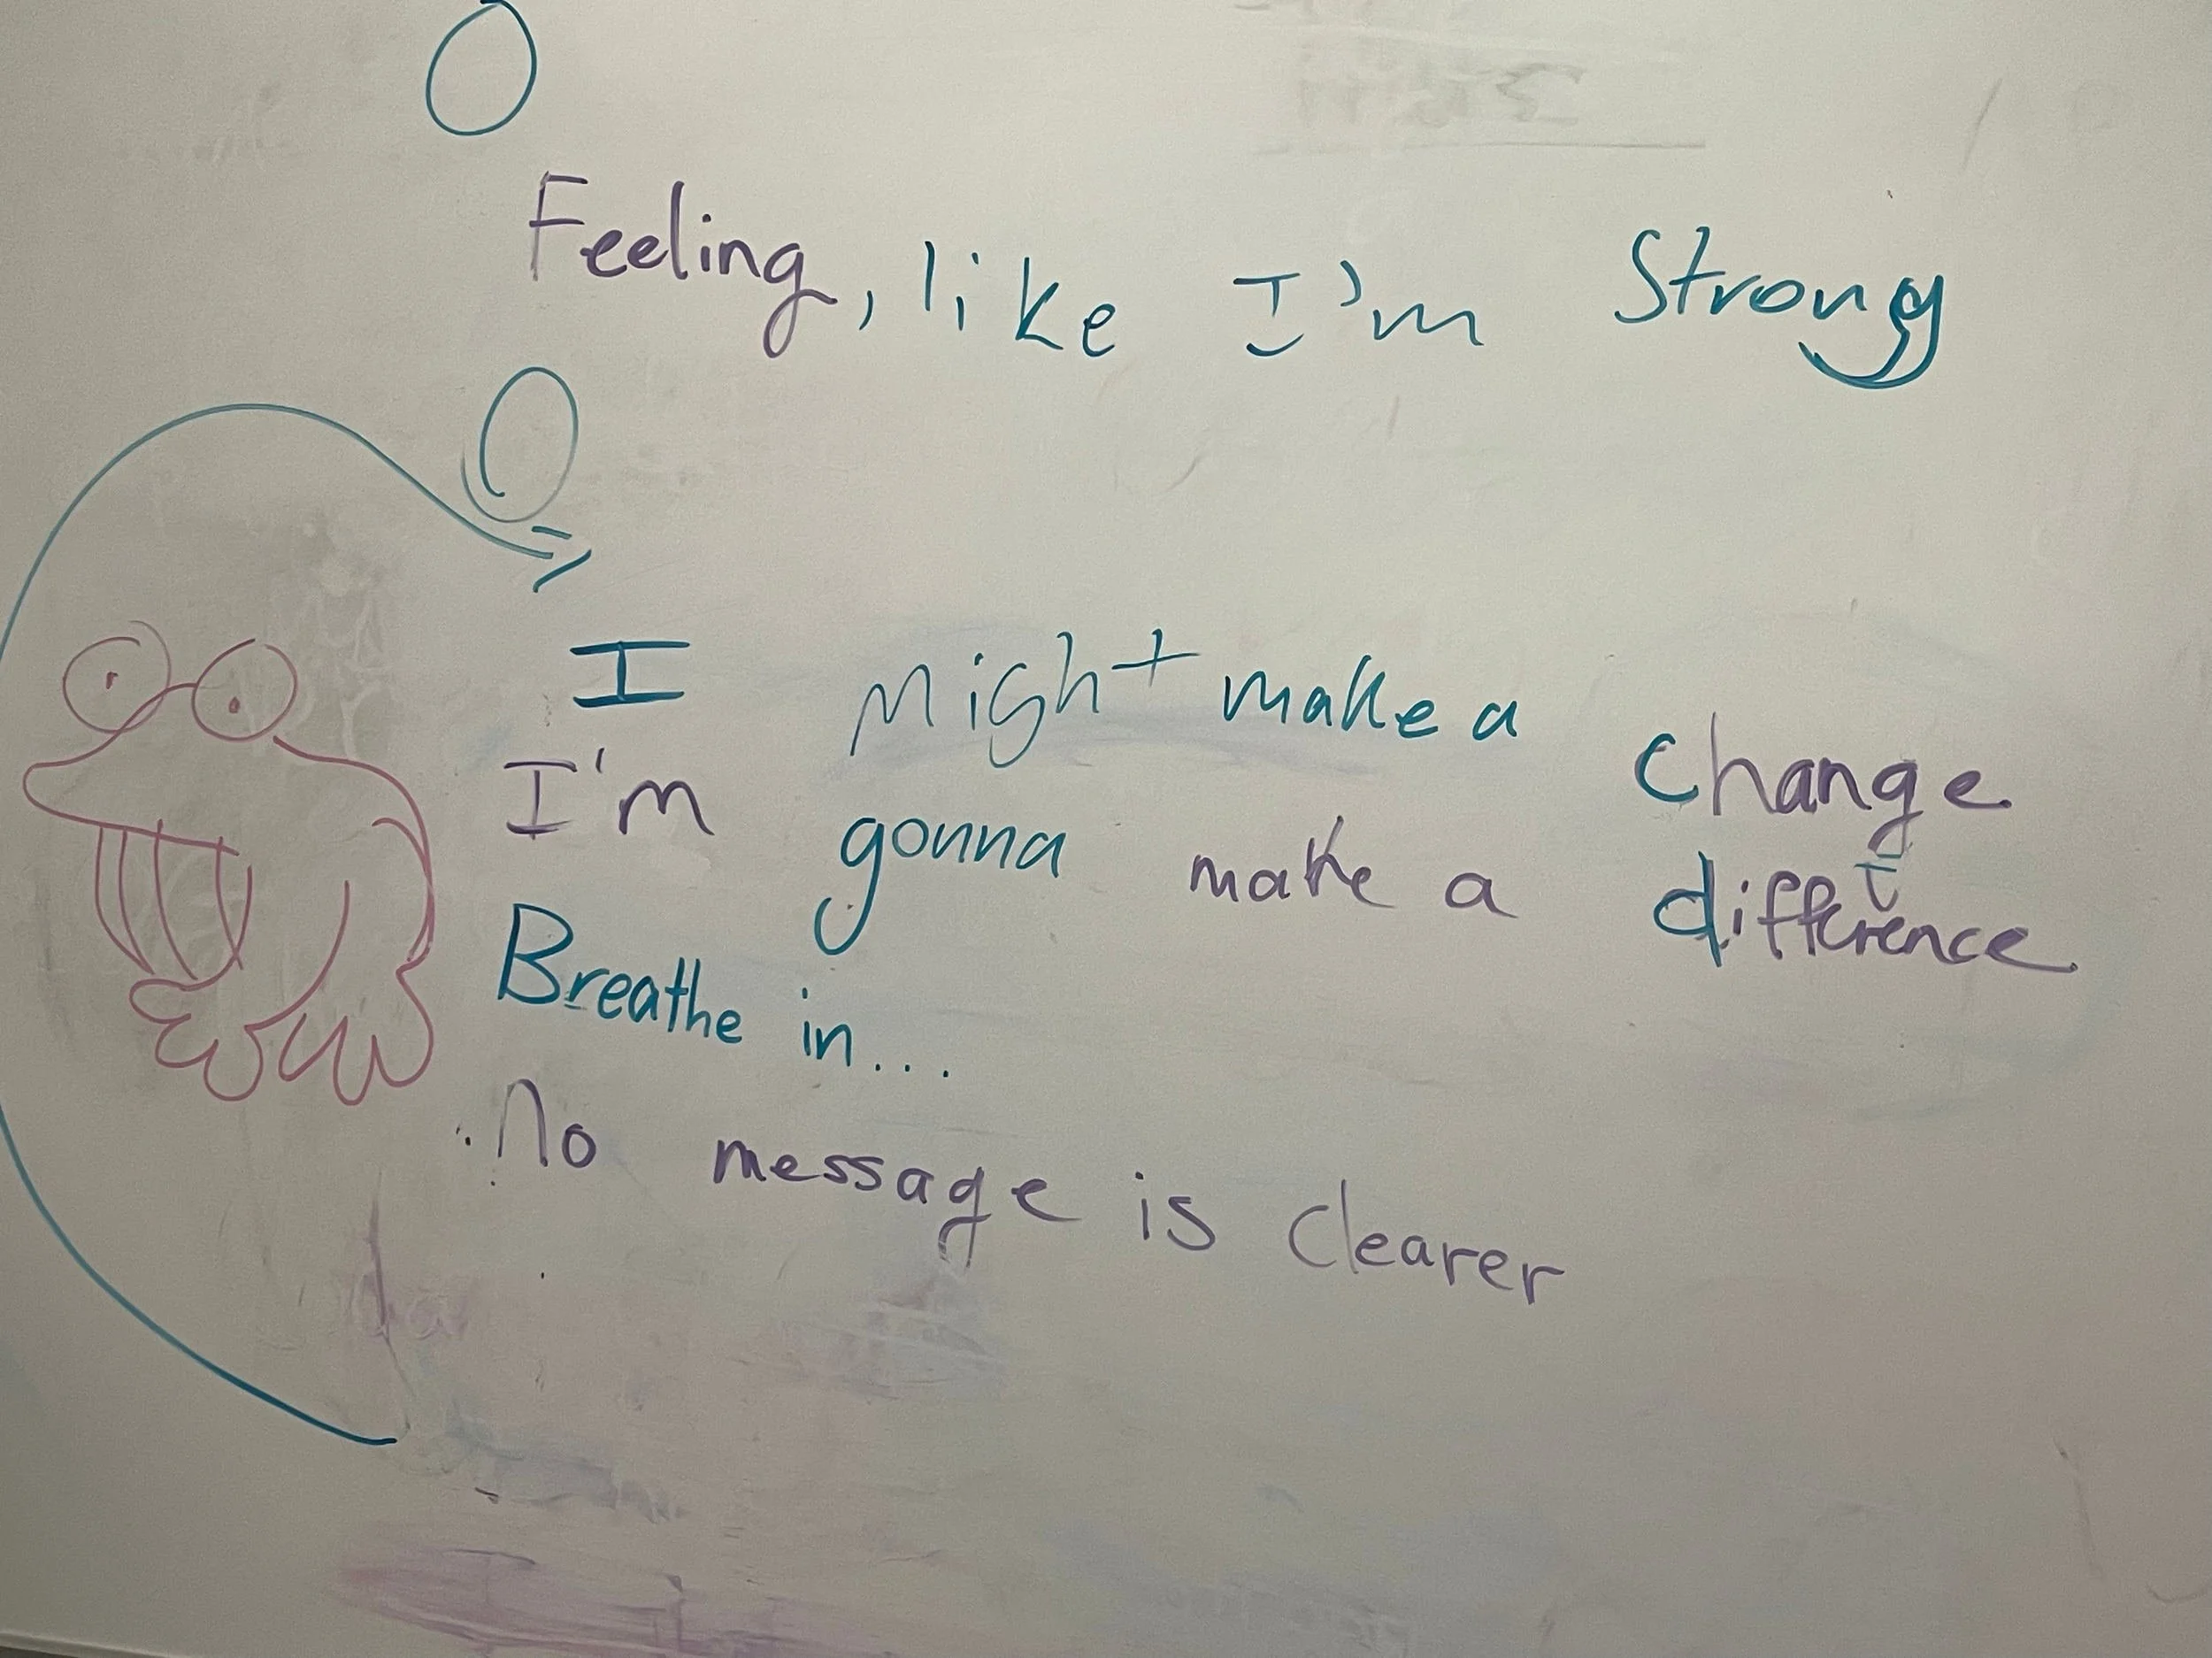 Feeling, like I'm Strong
I Might make a change
I'm gonna make a difference
Breathe in...
No message is clearer